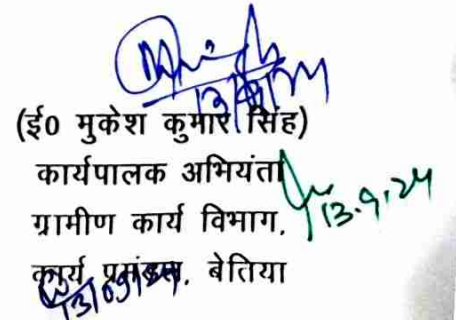 13/9/24
(ई0 मुकेश कुमार सिंह)
कार्यपालक अभियंता
13.9.24
ग्रामीण कार्य विभाग,
कार्य प्रमंडल, बेतिया
13/09/24